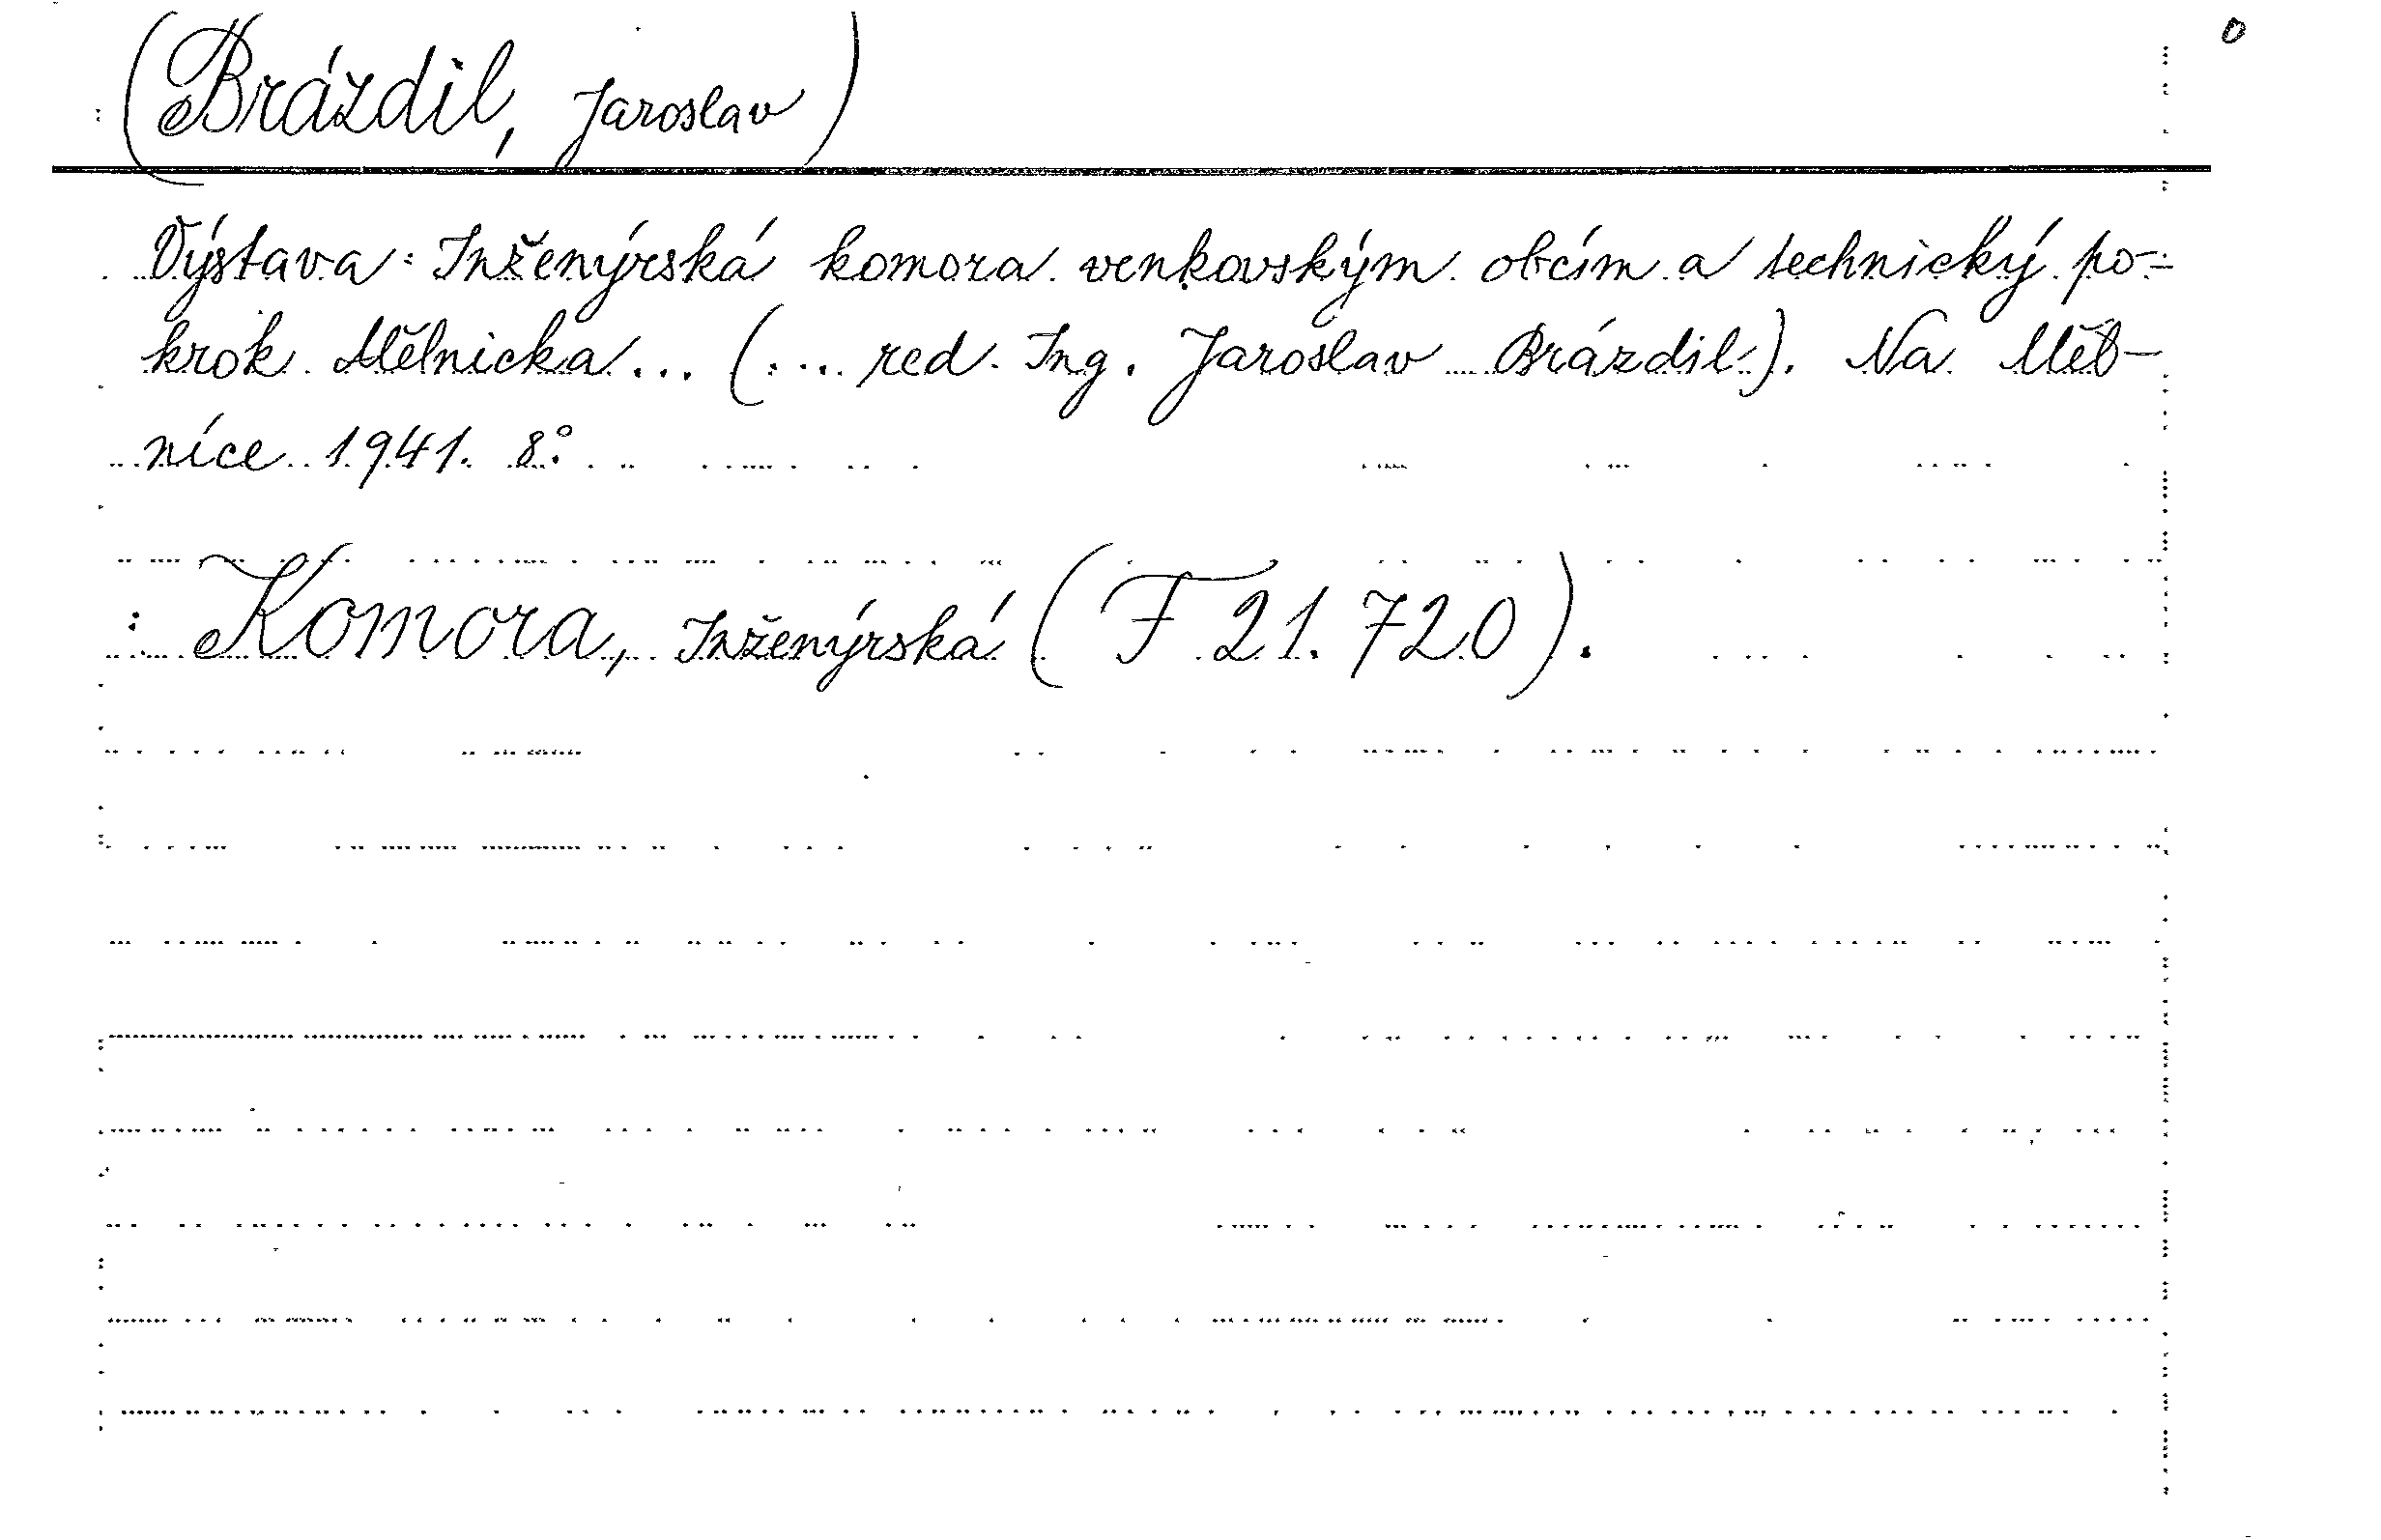 (Brázdil, Jaroslav)
Výstava: Inženýrská komora venkovským obcím a technický po-
krok Mělnicka... (... red. Ing. Jaroslav Brázdil). Na Měl-
níce 1941. 8°.
: Komora, Inženýrská (F 21.720).